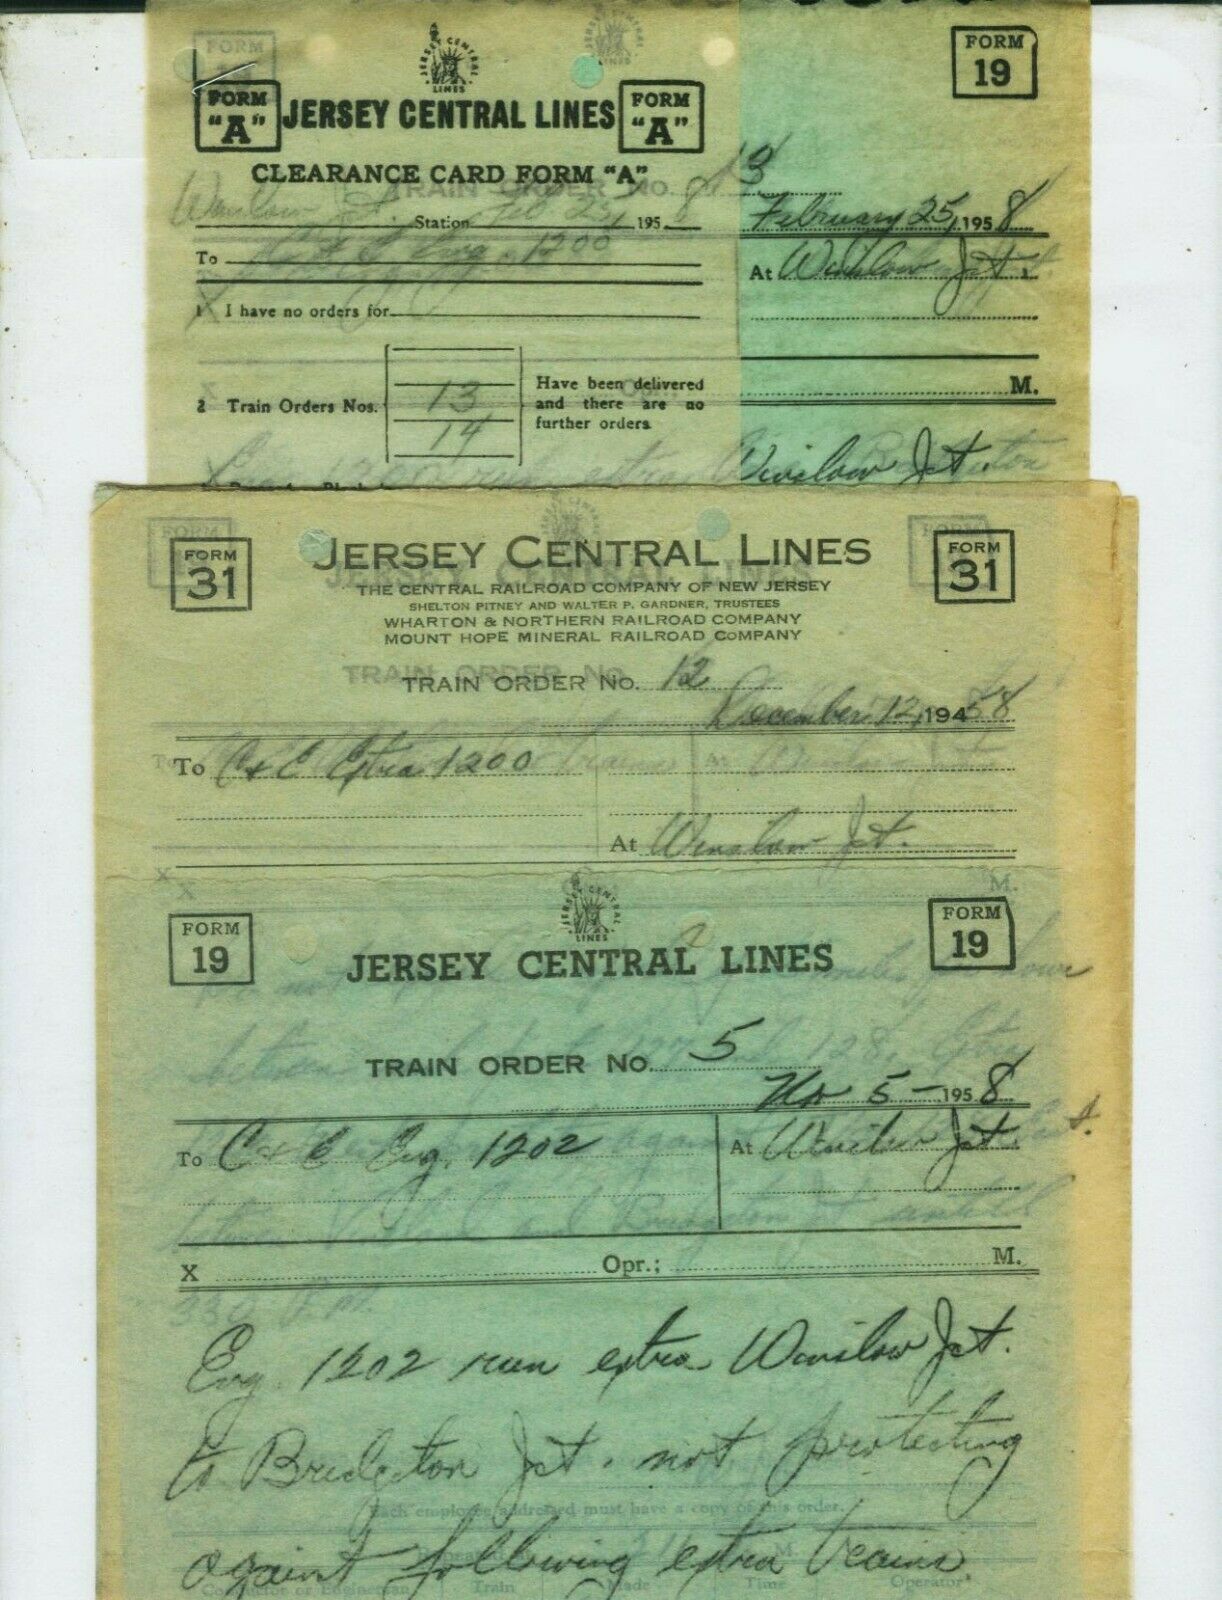 FORM 19
JERSEY CENTRAL LINES
FORM "A"
JERSEY CENTRAL LINES
FORM "A"
CLEARANCE CARD FORM "A"
TRAIN ORDER NO. 13
Winslow Jct. Station Feb. 25, 1958
February 25, 1958
To C & E Eng. 1200
At Winslow Jct.
1 I have no orders for
2 Train Orders Nos. 13 14
Have been delivered and there are no further orders.
M.
Eng 1200 run extra Winslow Jct.
FORM 31
JERSEY CENTRAL LINES
FORM 31
THE CENTRAL RAILROAD COMPANY OF NEW JERSEY
SHELTON PITNEY AND WALTER P. GARDNER, TRUSTEES
WHARTON & NORTHERN RAILROAD COMPANY
MOUNT HOPE MINERAL RAILROAD COMPANY
TRAIN ORDER NO. 12
December 12, 19458
To C & E Extra 1200
At Winslow Jct.
X
M.
FORM 19
JERSEY CENTRAL LINES
FORM 19
JERSEY CENTRAL LINES
TRAIN ORDER NO. 5
5- 1958
To C & E Eng. 1202 At Winslow Jct.
X Opr.; M.
Eng. 1202 run extra Winslow Jct.
to Bridgeton Jct. not protecting
Each employee addressed must have a copy of this order.
against following extra trains.
Conductor or Engineman Train Made Time Operator